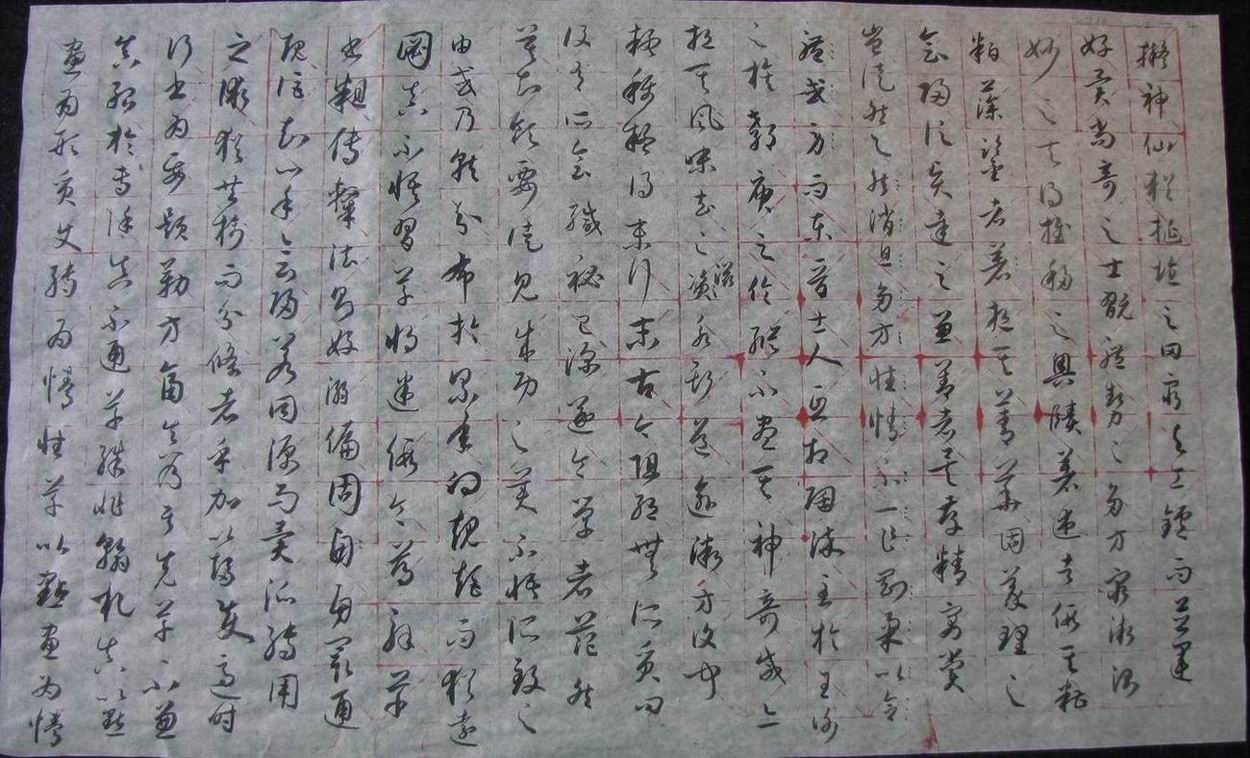 擬神仙猶挻埴之罔窮與工鑪而並運
好異尚奇之士翫體勢之多方窮微測
妙之夫得推移之奧賾著述者假其糟
粕藻鑒者挹其菁華固義理之
會歸信賢達之兼善者矣存精寓賞
豈徒然歟然消息多方性情不一乍剛柔以合
體或方而東晉士人互相陶淬至於王謝
之族郗庾之倫縱不盡其神奇咸亦
挹其風味去之滋永斯道逾微方復聞
疑稱疑得末行末古今阻絕無所質問
設有所會緘秘已深遂令學者茫然
莫知領要徒見成功之美不悟所致之
由或乃就分布於累年向規矩而猶遠
圖真不悟習草將迷假令薄解草
書粗傳隸法則好溺偏固自閡通
規詎知心手會歸若同源而異派轉用
之術猶共樹而分條者乎加以趨變適時
行書為要題勒方畐真乃居先草不兼
真殆於專謹真不通草殊非翰札真以點
畫為形質使轉為情性草以點畫為情